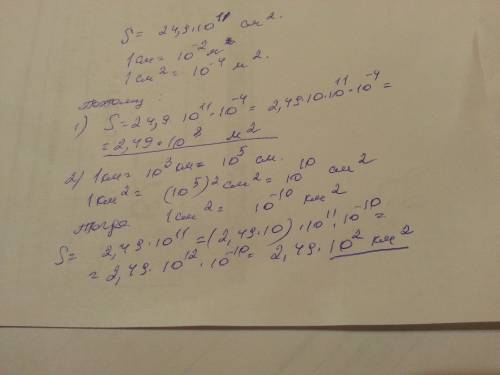 S = 24,9 · 10¹¹ см².
1см = 10⁻² м
1см² = 10⁻⁴ м².
поэтому :
1) S = 24,9 · 10¹¹ · 10⁻⁴ = 2,49 · 10 · 10¹¹ · 10⁻⁴ =
= 2,49 · 10⁸ м²
2) 1км = 10³ км = 10⁵ см.
1км² = (10⁵)² см² = 10¹⁰ см²
Тогда 1см² = 10⁻¹⁰ км²
S = 2,49 · 10¹¹ = (2,49 · 10) · 10¹¹ · 10⁻¹⁰ =
= 2,49 · 10¹² · 10⁻¹⁰ = 2,49 · 10² км²